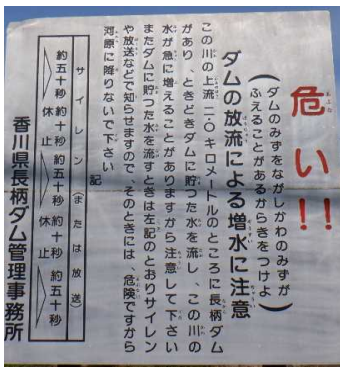 危い!!
(ダムのみずをながしかわのみずが
ふえることがあるからきをつけよ)
ダムの放流による増水に注意
この川の上流二・〇キロメートルのところに長柄ダム
があり、ときどきダムに貯つた水を流し、この川の
水が急に増えることがありますから注意して下さい
またダムに貯つた水を流すときは左記のとおりサイレン
や放送などで知らせますので、そのときには、危険ですから
河原に降りないで下さい
記
サイレン(または放送)
約五十秒 約十秒休止 約五十秒 約十秒休止 約五十秒
香川県長柄ダム管理事務所